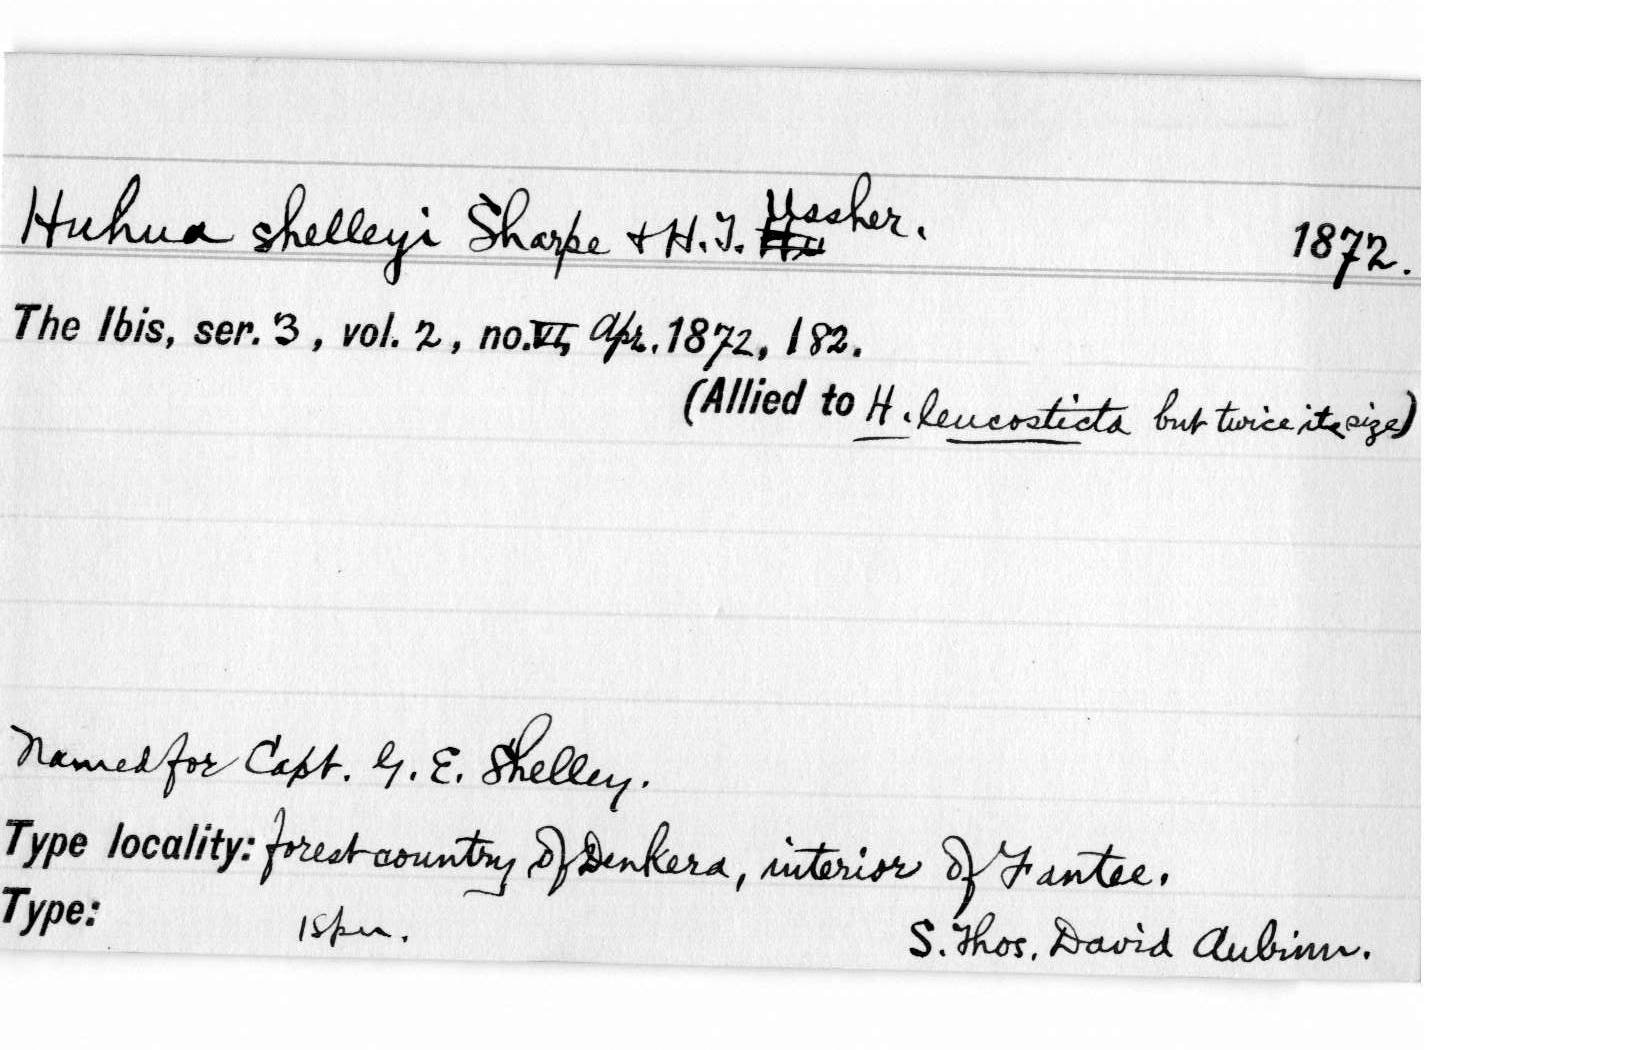 Huhua shelleyi Sharpe + H.T. Ussher. 1872.
The Ibis, ser. 3, vol. 2, no. VI, Apr. 1872, 182.
(Allied to H. leucosticta but twice its size)
Named for Capt. G. E. Shelley.
Type locality: forest country of Denkera, interior of Fantee.
Type: 1 spn. S. Thos. David Aubinn.